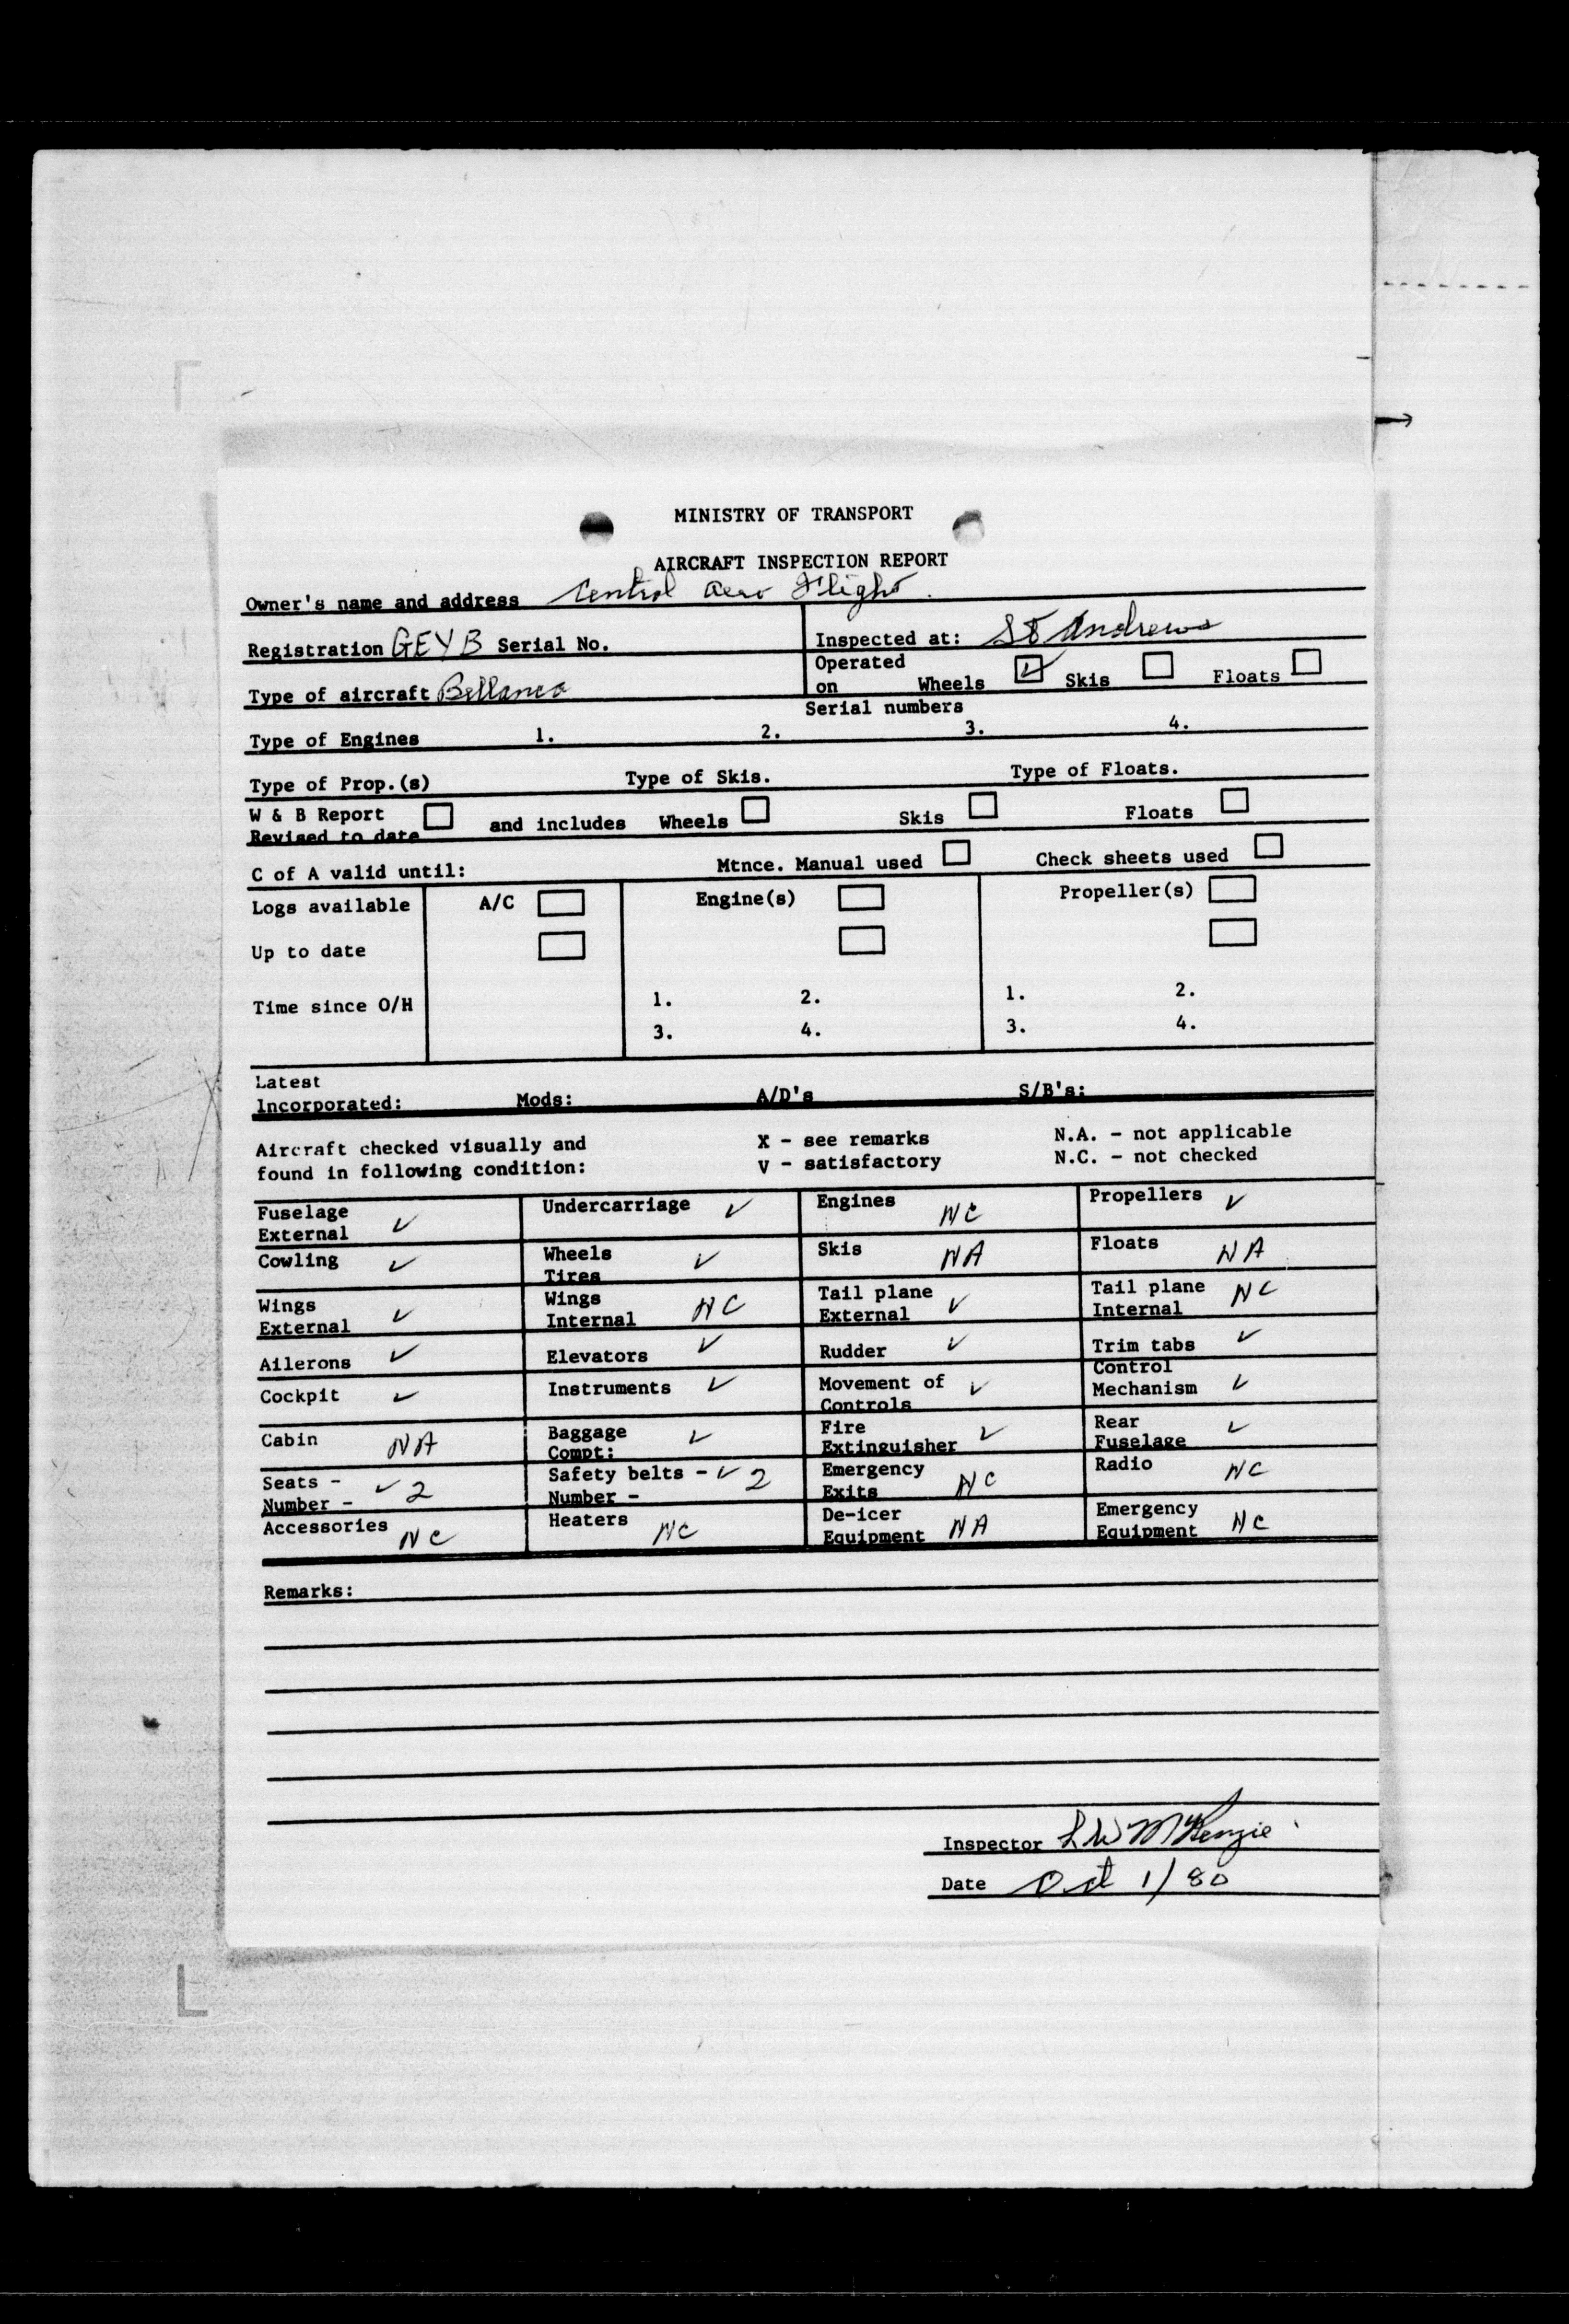 MINISTRY OF TRANSPORT
AIRCRAFT INSPECTION REPORT
Owner's name and address Central Aero Flight.
Registration GEYB Serial No. Inspected at: St Andrews
Type of aircraft Bellanca Operated on Wheels ✓ Skis Floats
Serial numbers
Type of Engines 1. 2. 3. 4.
Type of Prop.(s) Type of Skis. Type of Floats.
W & B Report
Revised to date and includes Wheels Skis Floats
C of A valid until: Mtnce. Manual used Check sheets used
Logs available A/C Engine(s) Propeller(s)
Up to date
Time since O/H 1. 2. 1. 2.
3. 4. 3. 4.
Latest
Incorporated: Mods: A/D's S/B's:
Aircraft checked visually and X - see remarks N.A. - not applicable
found in following condition: V - satisfactory N.C. - not checked
Fuselage External ✓ Undercarriage ✓ Engines NC Propellers ✓
Cowling ✓ Wheels Tires ✓ Skis NA Floats NA
Wings External ✓ Wings Internal NC Tail plane External ✓ Tail plane Internal NC
Ailerons ✓ Elevators ✓ Rudder ✓ Trim tabs ✓
Cockpit ✓ Instruments ✓ Movement of Controls ✓ Control Mechanism ✓
Cabin NA Baggage Compt: ✓ Fire Extinguisher ✓ Rear Fuselage ✓
Seats - Number - ✓ 2 Safety belts - Number - ✓ 2 Emergency Exits NC Radio NC
Accessories NC Heaters NC De-icer Equipment NA Emergency Equipment NC
Remarks:
Inspector L W McKenzie
Date Oct 1/80